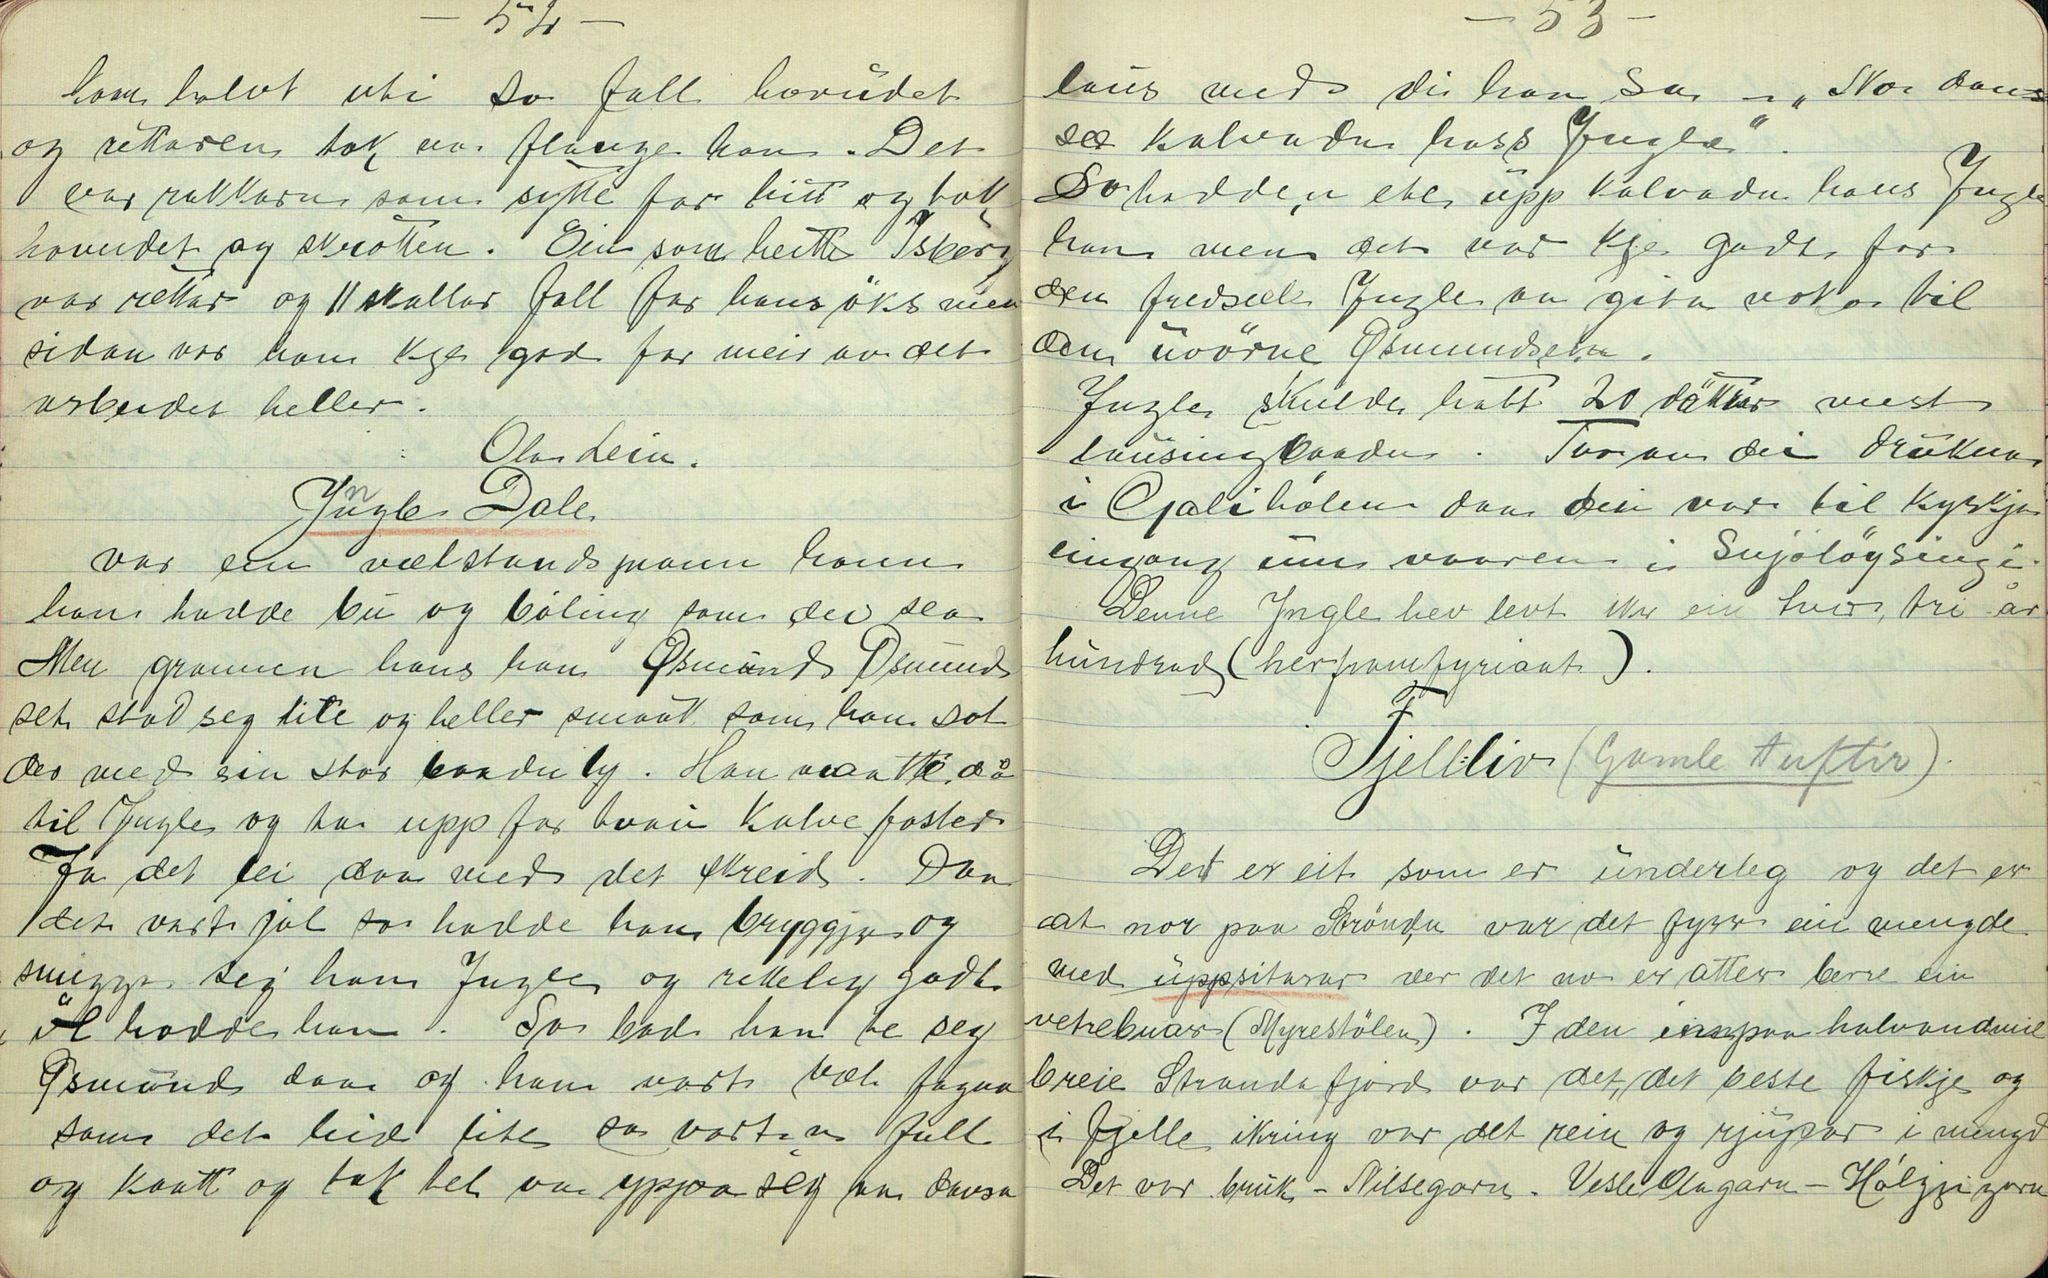 - 52 -
ham halvt uti so fall hovudet
og rettaren tok na flange han. Det
var rakkarn som sytte for litt og tok
hovudet og skrotten. Ein som heitte Isberg
var rettar og 11 skallar fall for hans öks men
sidan var han kje god for meir av det
arbeidet heller.
Ola Lein.
Yngle Dale
var ein vælstandsmann hann
han hadde bu og böling som dei sea
Men grannen hans han Osmund Osmund
set stod seg lite og heller smaatt som han sat
der med sin stor baadnly. Han maatte då
til Yngle og ta upp for tvai kalve foster
Ja det lei daa med det skreid. Daa
det vart jol so hadde han bryggja og
snigge seg han Yngle og retteleg godt
öl hadde han. So bad han te seg
Osmund daa og han vart væl fagna
som det leid lite so vart'n full
og kaatt og tok tel aa yppa seg aa dansa
- 53 -
laus med di han sa - „No dans
se kalvadn hass Yngle".
So hadde'n ete upp kalvadn hans Yngle
han men det var kje godt for
den fredsele Yngle aa gita vota til
den uvörne Osmundseten.
Yngle skulde hatt 20 dötter mest
lausingbaadn. Tvo av dei drukna
i Ojalihölen daa dei var til kyrkja
eingong um vaaren i Snjolöysingi.
Denne Yngle hev levt ikr ein tvo, tri år
hundrad (herframfyriaat).
Fjellliv (Gamle tuftir).
Det er eit som er underleg og det er
at nor paa Strönda var det fyrr ein mengde
med uppsitarar der det no er atter berre ein
vetrebuar (Myrestölen). I den innpaa halvandmil
breie Strandafjord var det, det beste fiskje og
i fjelle ikring var det rein og rjupor i mengd
Det var bruk - Nilsegarn - Vesle Olagarn - Hölgjigarn